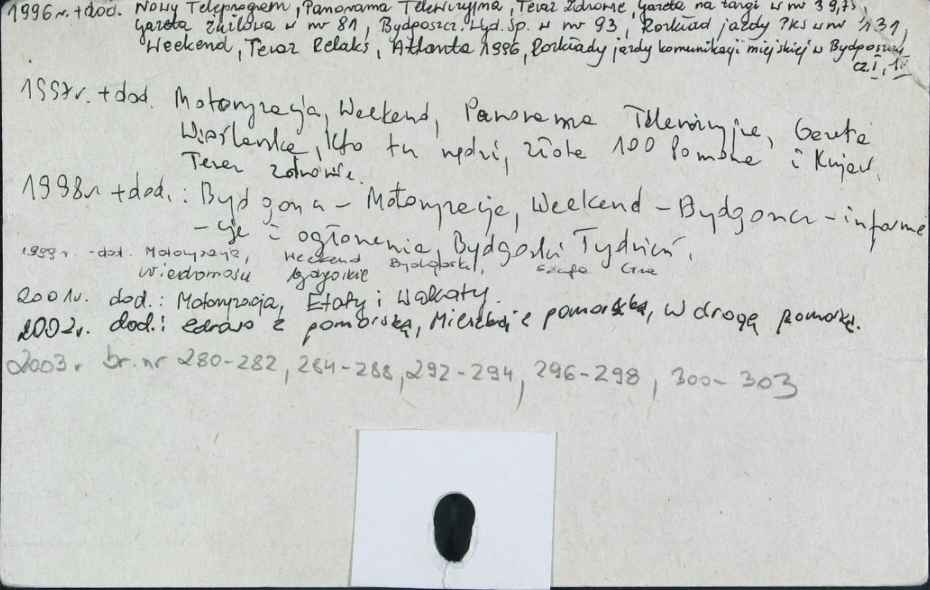 1996r. + dod. Nowy Teleprogram, Panorama Telewizyjna, Teraz Zdrowie, Gazeta na targi w nr 39,
Gazeta w nr 81, Bydgoszcz. Wyd. sp. w nr 93, Rozkład jazdy PKS w nr 131,
Weekend, Teraz Relaks, Atlanta 1996, Rozkłady jazdy komunikacji miejskiej w Bydgoszczy
cz. I,
1997r. + dod. Motoryzacja, Weekend, Panorama Telewizyjna, Gazeta
Wiślanka, Kto tu rządzi, złote 100 Pomorza i Kujaw,
Teraz zdrowie.
1998r + dod.: Bydgona - Motoryzacje, Weekend - Bydgona - informa
- cje i ogłoszenia, Bydgoski Tydzień.
1999r. - dod. Motoryzacja, Weekend Bydgoski,
wiadomości bydgoskie
2001r. dod.: Motoryzacja, Etaty i Wakaty.
2002r. dod.: zdrowo z pomorską, Mieszkaj z pomorską, w drogę z pomorską.
2003r br. nr 280-282, 284-288, 292-294, 296-298, 300-303